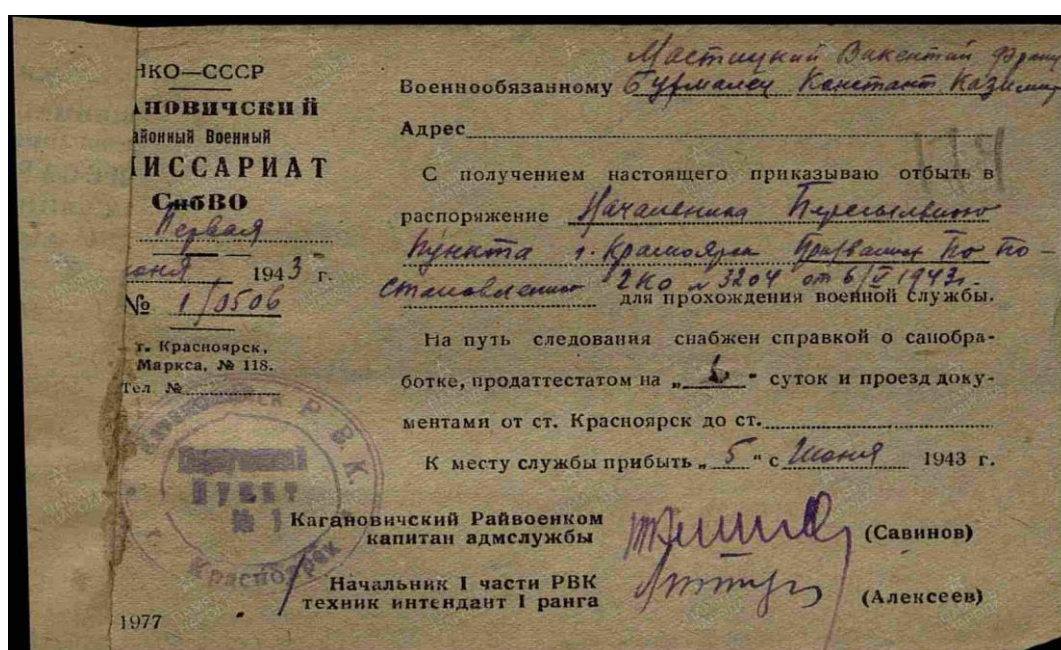 НКО—СССР
АНОВИЧСКИЙ
айонный Военный
ИССАРИАТ
СибВО
Первая
июня 1943 г.
№ 1/0506
г. Красноярск,
Маркса, № 118.
Тел №
Военнообязанному Мастицкий Викентий Франц
Бурмалец Констант Казимир
Адрес
С получением настоящего приказываю отбыть в
распоряжение Начальника Пересыльного
пункта г. Красноярск Призваных По По-
становлению ГКО № 3204 от 6/V 1943г.
для прохождения военной службы.
На путь следования снабжен справкой о санобра-
ботке, продаттестатом на „ “ суток и проезд доку-
ментами от ст. Красноярск до ст.
К месту службы прибыть „5“ с Июня 1943 г.
Кагановичский Райвоенком
капитан адмслужбы (Савинов)
Начальник I части РВК
техник интендант I ранга (Алексеев)
Р. В. К.
Пункт
№ 1
Красноярск
1977